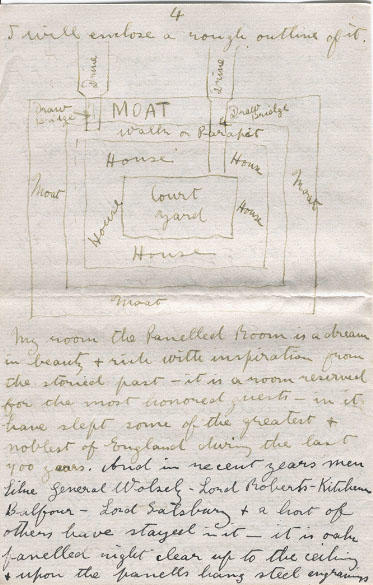 4
I will enclose a rough outline of it.
Drive
Drive
Draw
bridge
MOAT
Draw bridge
Walk or Parapet
House
House
Moat
Court
yard
Moat
House
House
House
Moat
My room the Panelled Room is a dream
in beauty & rich with inspiration from
the storied past - it is a room reserved
for the most honored guests - in it
have slept some of the greatest &
noblest of England during the last
400 years. And in recent years men
like General Wolsely - Lord Roberts - Kitchener
Balfour - Lord Salsbury & a host of
others have stayed in it - it is oak
panelled right clear up to the ceiling
& upon the panells hang steel engravings